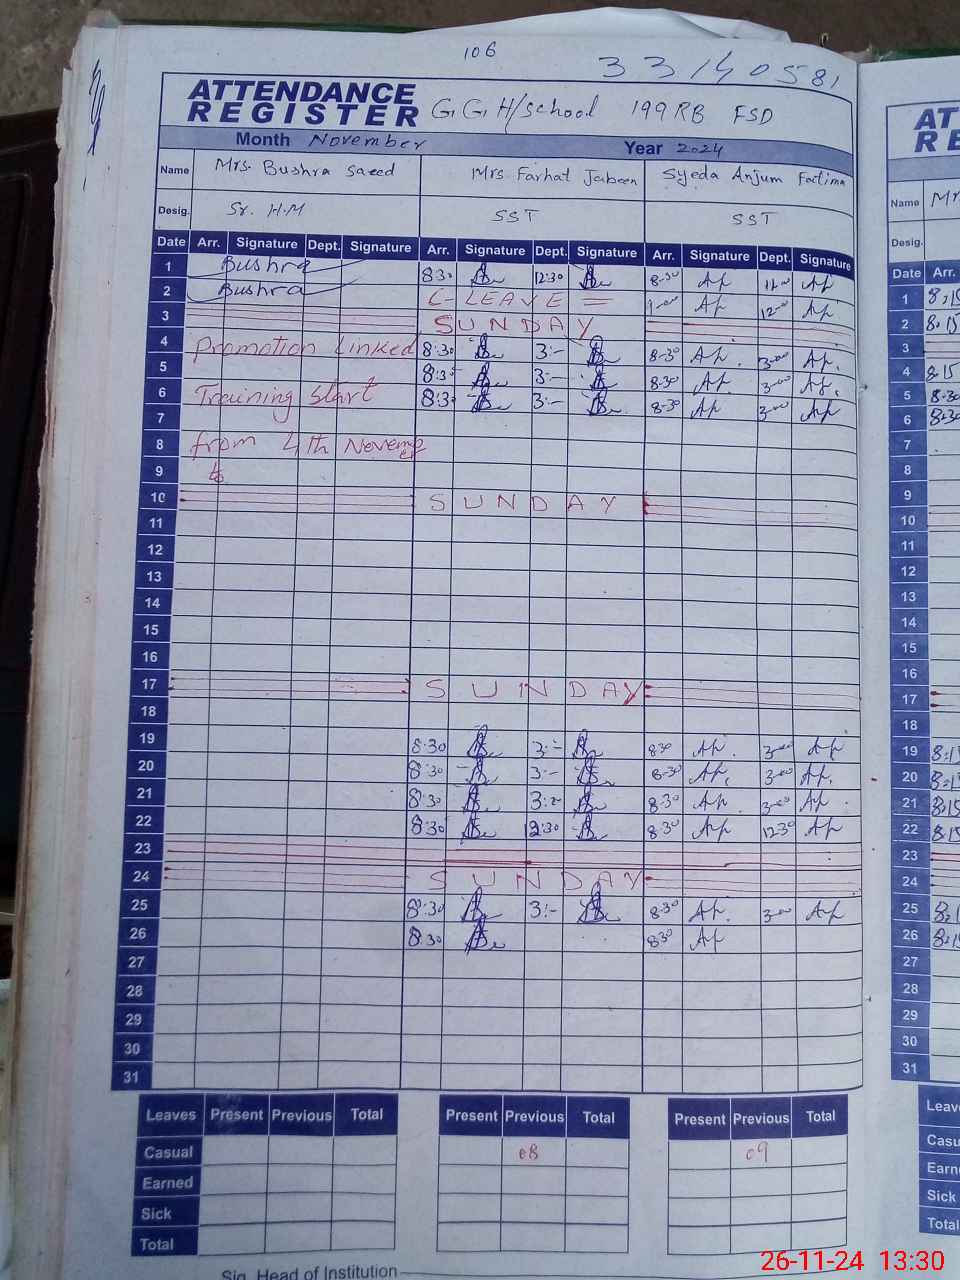 106
33140581
ATTENDANCE
REGISTER G.G.H/school 199RB FSD
Month November Year 2024
Name Mrs. Bushra Saeed Mrs Farhat Jabeen Syeda Anjum Fatima
Desig. Sr. H.M SST SST
Date Arr. Signature Dept. Signature Arr. Signature Dept. Signature Arr. Signature Dept. Signature
1 Bushra 8:30 12:30 8-30
2 Bushra C-LEAVE = 12-00
3 SUNDAY
4 Promotion Linked 8:30 3:- 8-30 3-00
5 8:30 3:- 8-30 3-00
6 Training start 8:30 3:- 8-30 3-00
7
8 from 4th Novemb
9 to
10 SUNDAY
11
12
13
14
15
16
17 SUNDAY
18
19 8:30 3:- 830 3-00
20 8:30 3:- 8-30 3-00
21 8:30 3:- 8-30 3-00
22 8:30 12:30 8-30 12-30
23
24 SUNDAY
25 8:30 3:- 8-30 3-00
26 8:30 830
27
28
29
30
31
Leaves Present Previous Total Present Previous Total Present Previous Total
Casual 08 09
Earned
Sick
Total
Sig. Head of Institution
AT
RE
Name Mr
Desig.
Date Arr.
1 8:15
2 8:15
3
4 8:15
5 8:30
6 8:30
7
8
9
10
11
12
13
14
15
16
17
18
19
20
21
22
23
24
25
26
27
28
29
30
31
Leave
Casu
Earn
Sick
Total
26-11-24 13:30